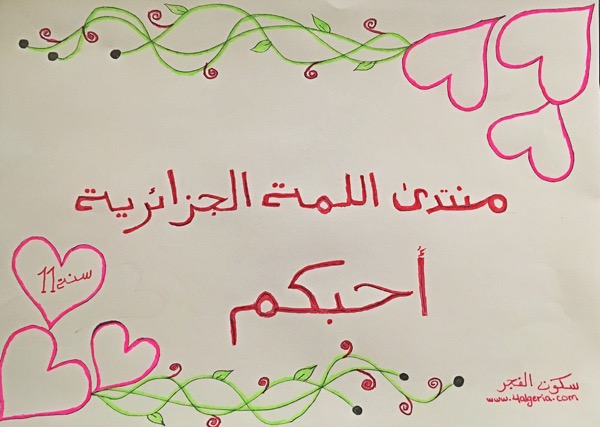 منتدى اللمة الجزائرية
أحبكم
11 سنة
سكون الفجر
www.4algeria.com